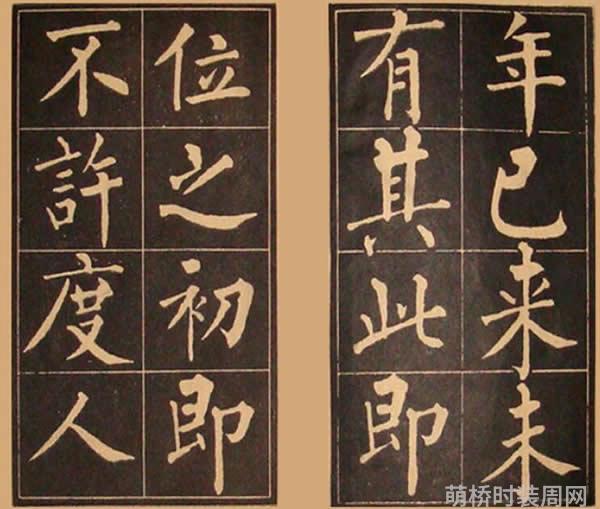 年已来未
有其此即
位之初即
不許度人
萌桥时装周网